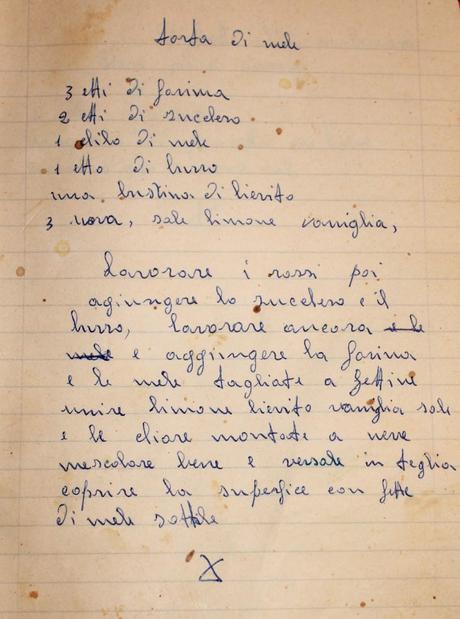 torta di mele
3 etti di farina
2 etti di zucchero
1 chilo di mele
1 etto di burro
una bustina di lievito
3 uova, sale limone vaniglia,
Lavorare i rossi poi
agiungere lo zucchero e il
burro, lavorare ancora e le
mele e aggiungere la farina
e le mele tagliate a fettine
unire limone lievito vaniglia sale
e le chiare montate a neve
mescolare bene e versale in teglia
coprire la superfice con fette
di mele sottile